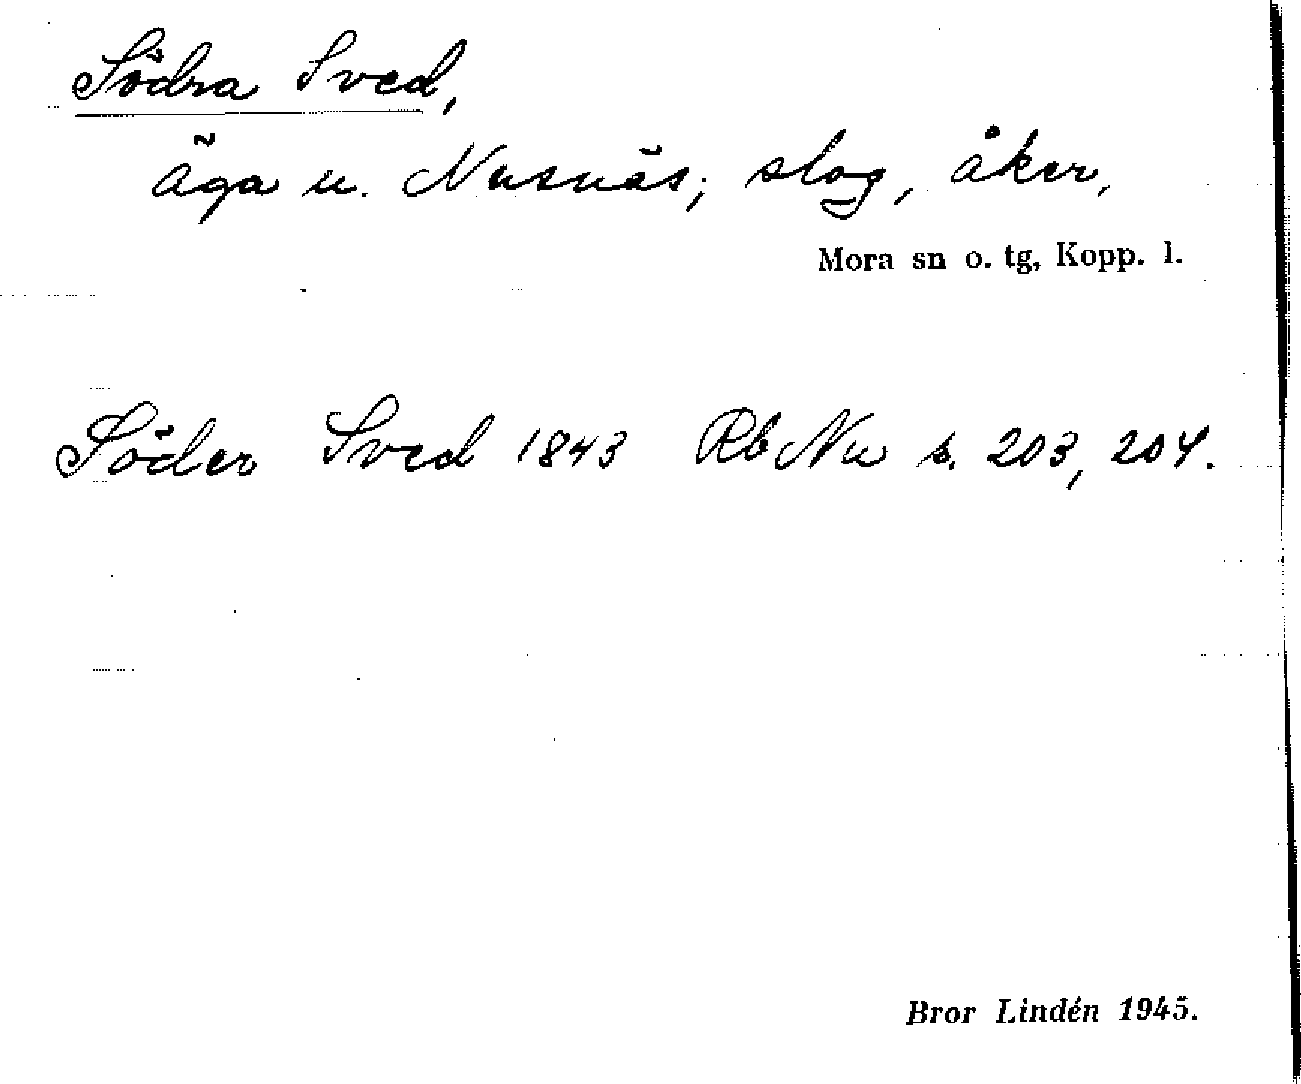 Södra Sved,
äga u. Nusnäs; slog, åker,
Mora sn o. tg, Kopp. l.
Söder Sved 1843 Rb Nu s. 203, 204.
Bror Lindén 1945.